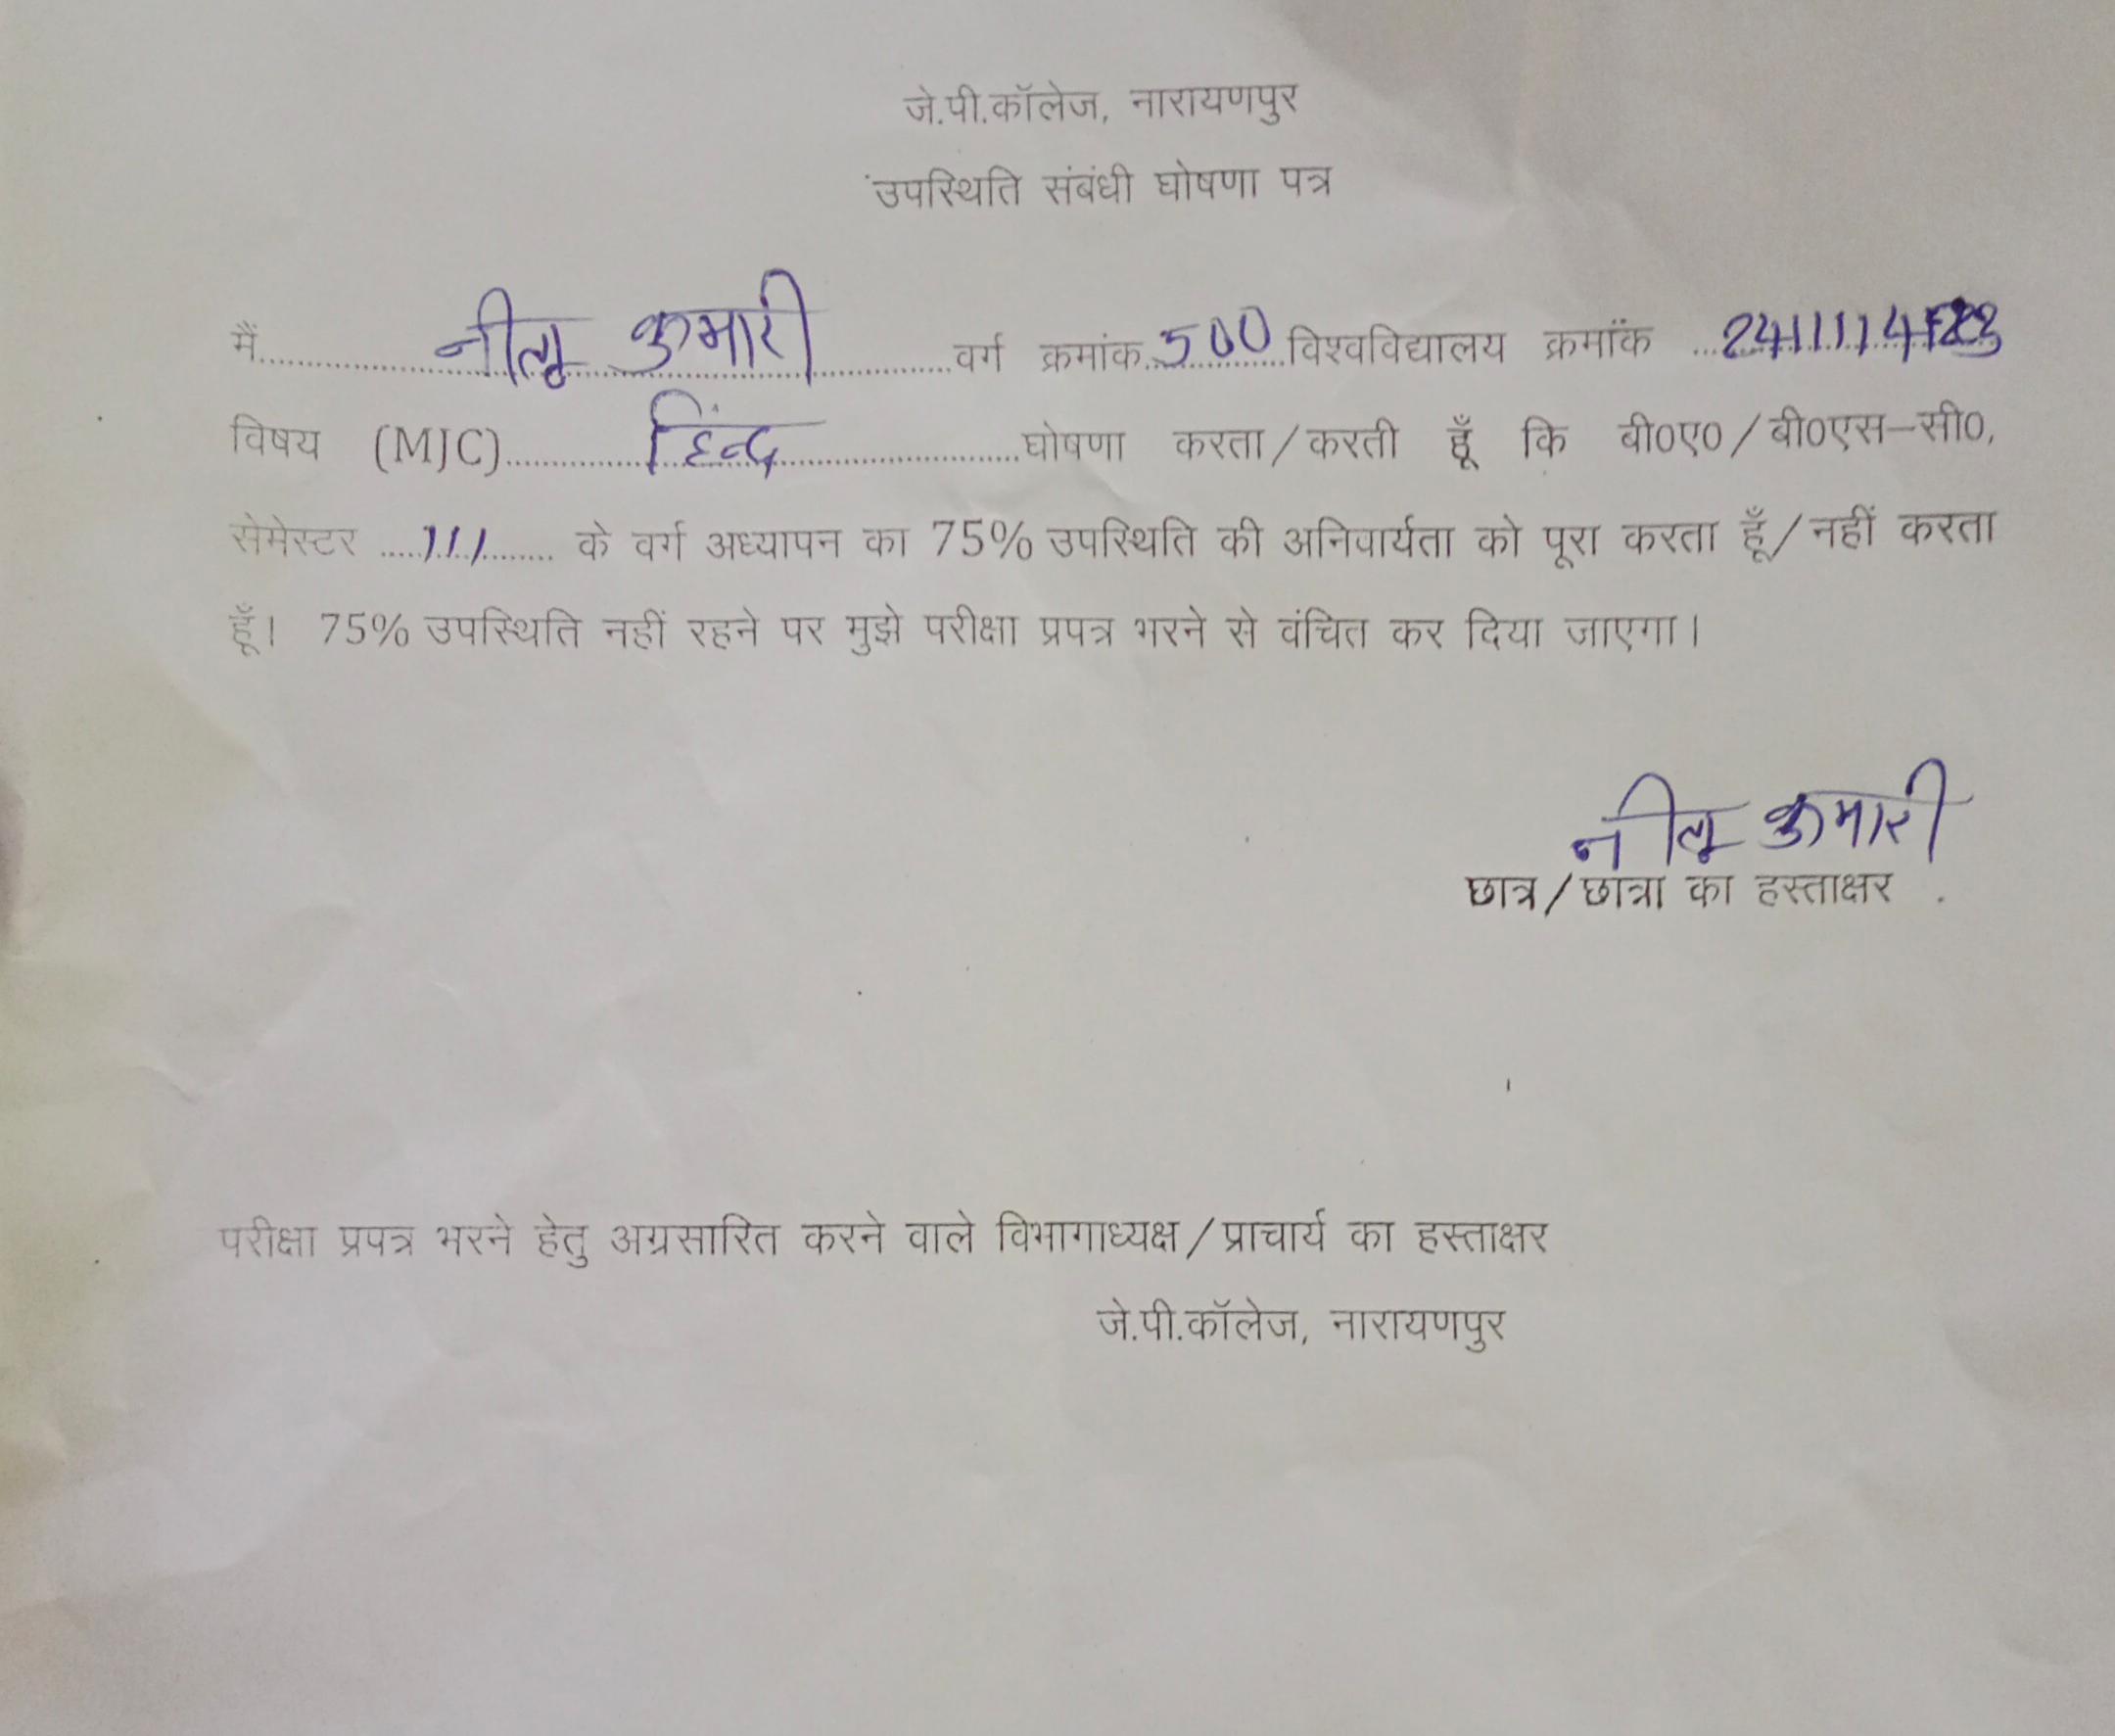 जे.पी.कॉलेज, नारायणपुर
उपस्थिति संबंधी घोषणा पत्र
मैं....नीलू कुमारी....वर्ग क्रमांक..500..विश्वविद्यालय क्रमांक ...
विषय (MJC)....हिन्द....घोषणा करता/करती हूँ कि बी0ए0/बी0एस–सी0,
सेमेस्टर ....III.... के वर्ग अध्यापन का 75% उपस्थिति की अनिवार्यता को पूरा करता हूँ/नहीं करता
हूँ। 75% उपस्थिति नहीं रहने पर मुझे परीक्षा प्रपत्र भरने से वंचित कर दिया जाएगा।
नीलू कुमारी
छात्र/छात्रा का हस्ताक्षर
परीक्षा प्रपत्र भरने हेतु अग्रसारित करने वाले विभागाध्यक्ष/प्राचार्य का हस्ताक्षर
जे.पी.कॉलेज, नारायणपुर